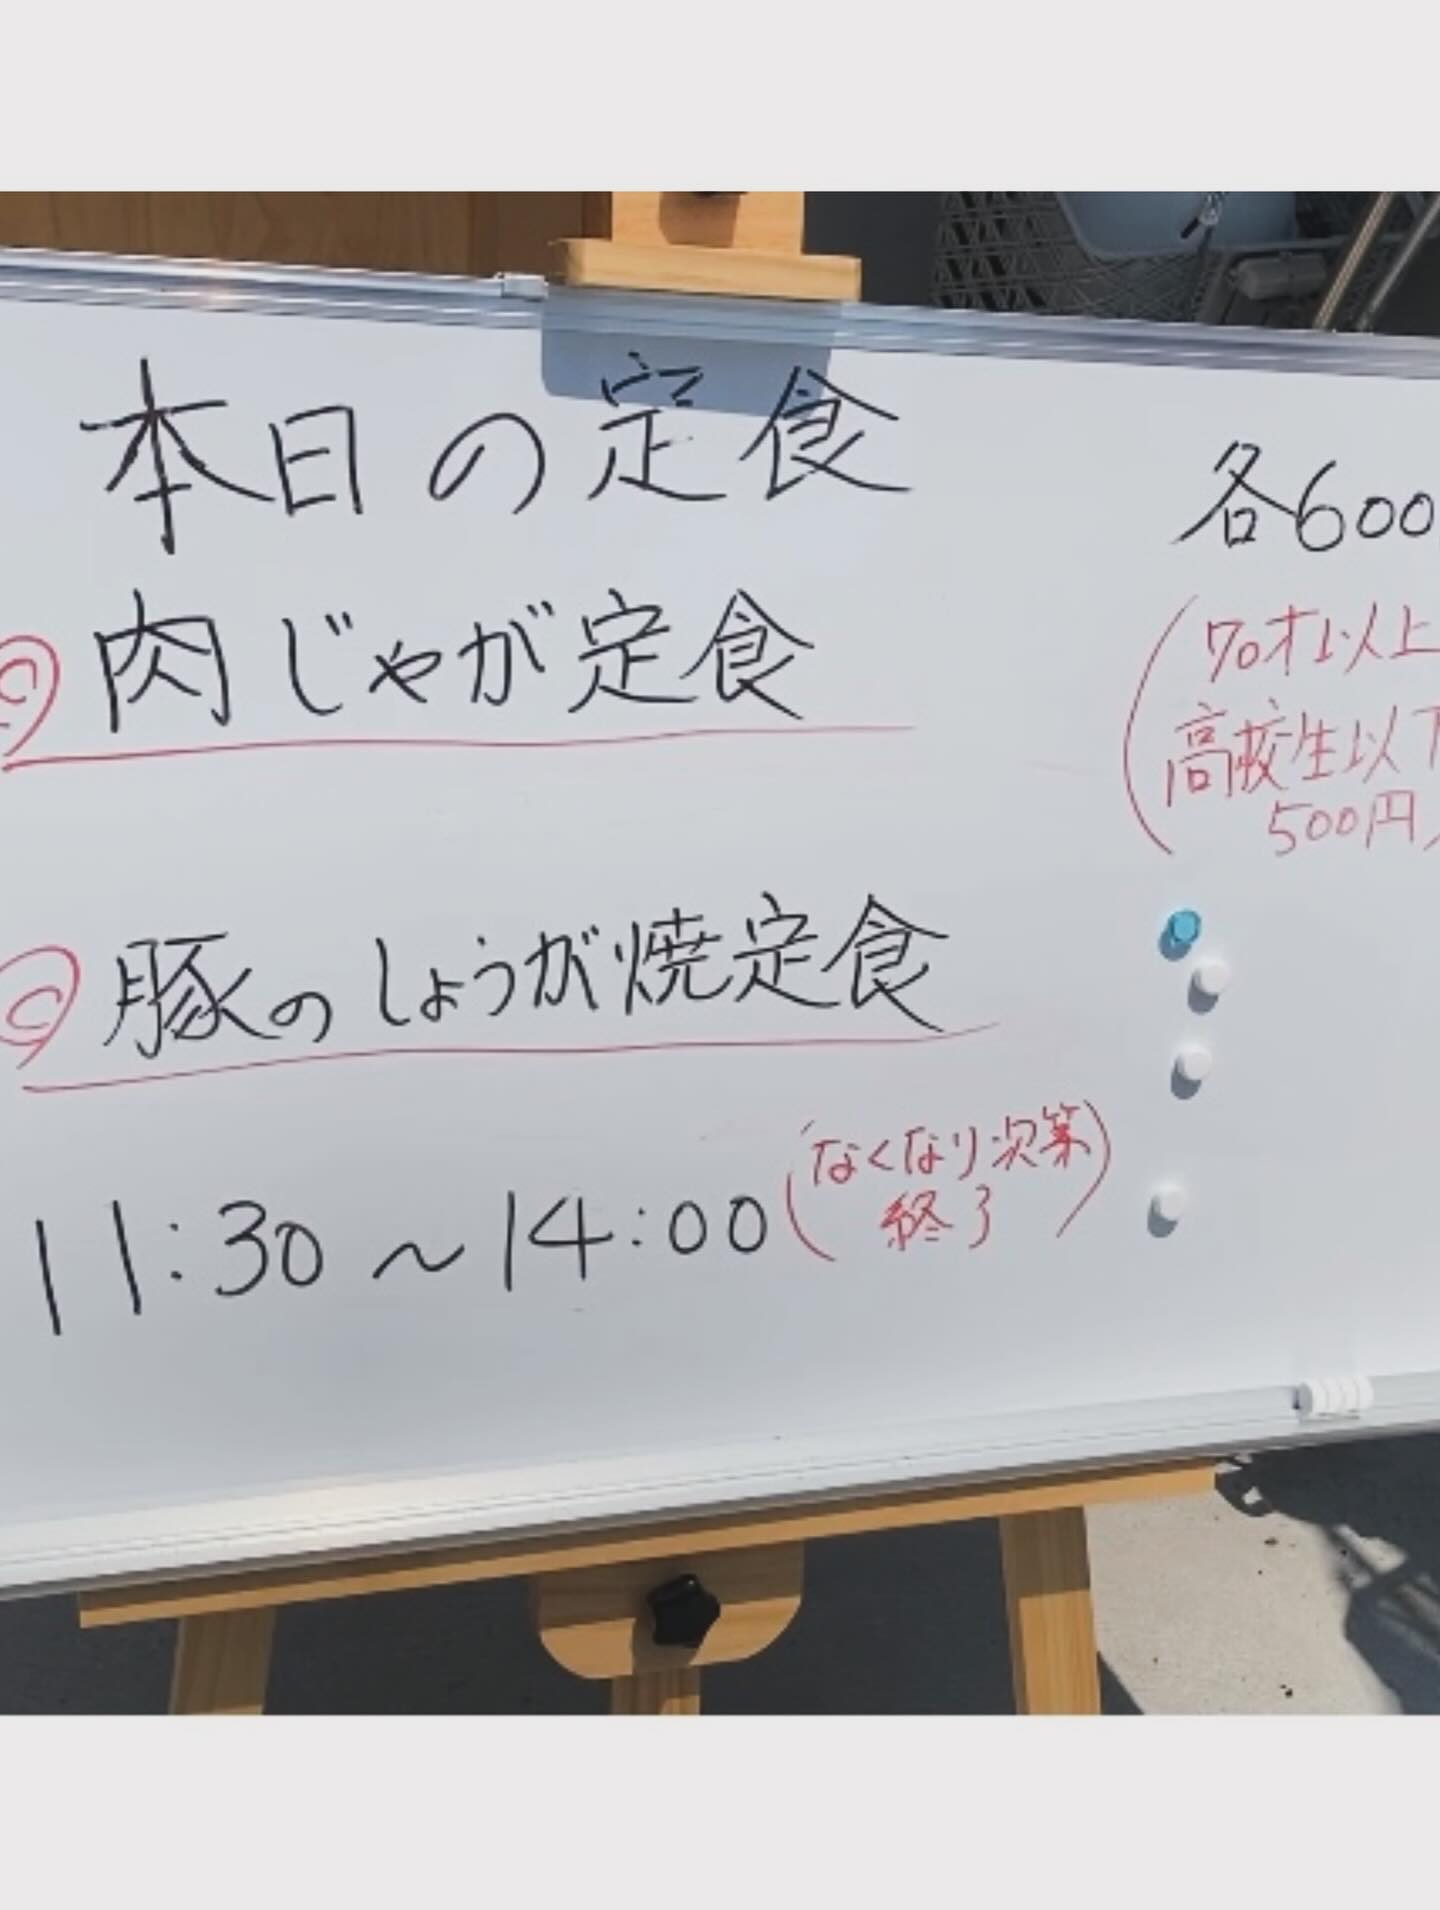 本日の定食
各600
肉じゃが定食
(70才以上
高校生以下
500円)
豚のしょうが焼定食
11:30～14:00
(なくなり次第
終了)